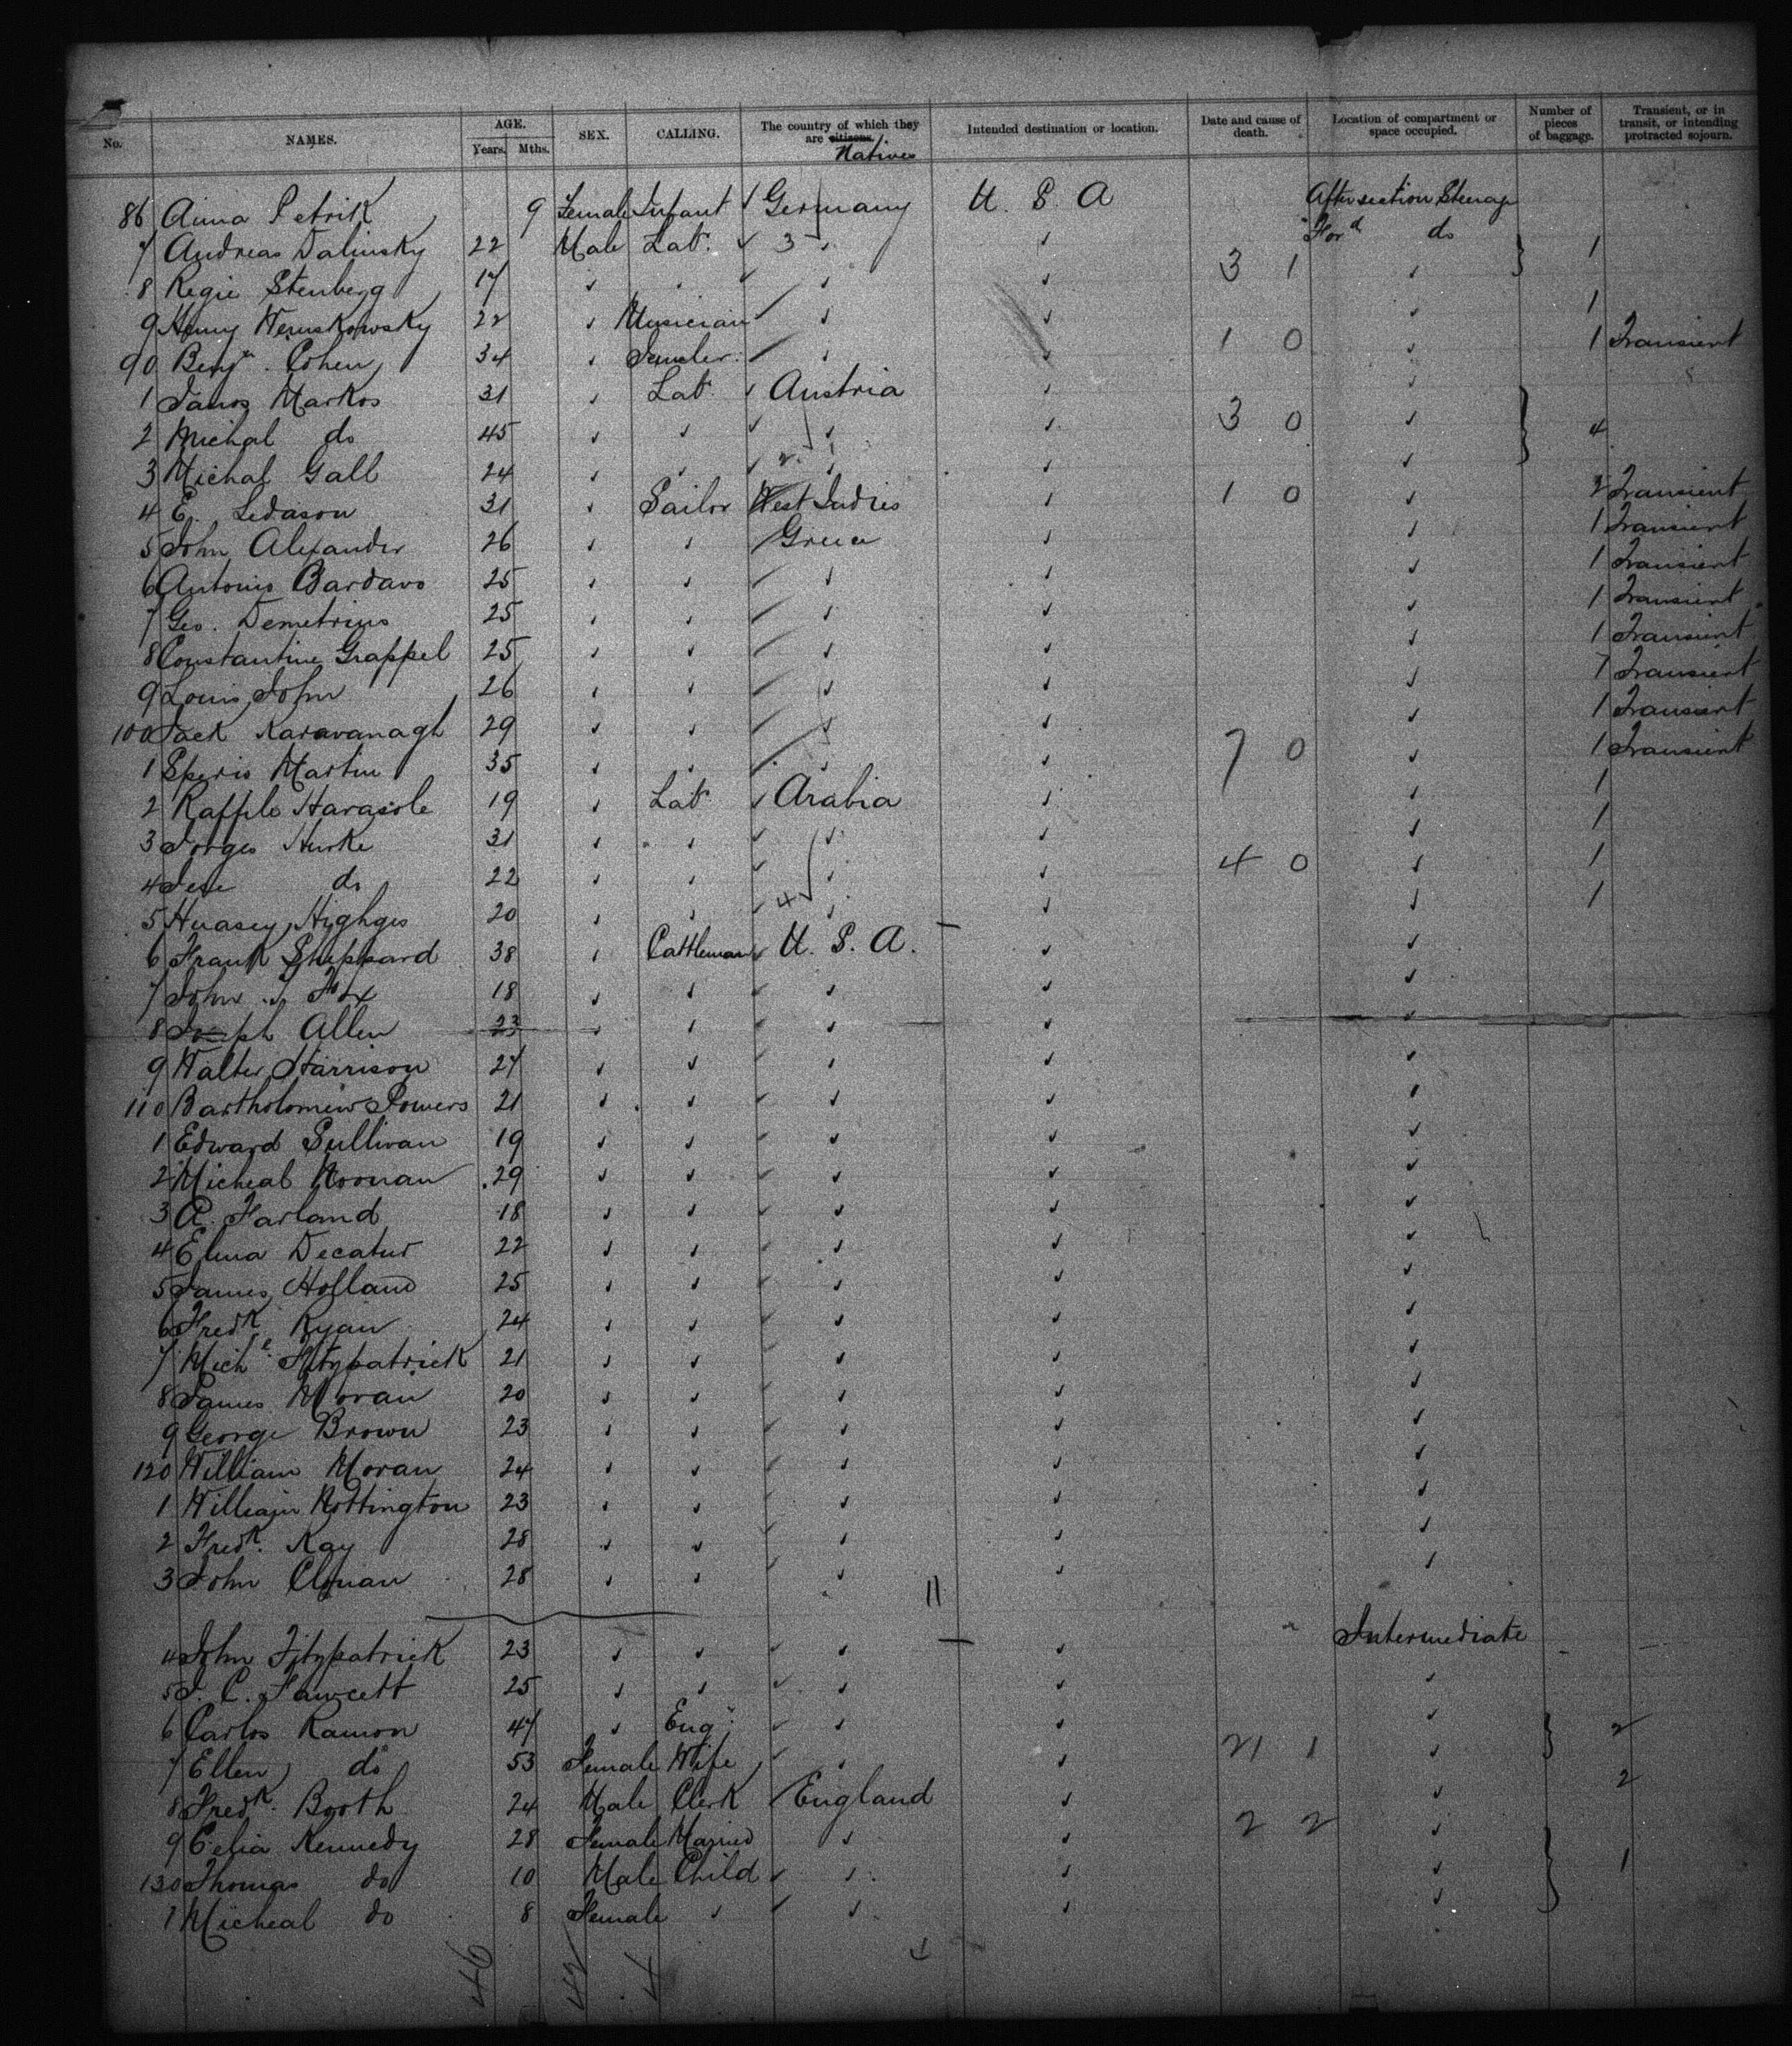 No. NAMES. AGE. Years. Mths. SEX. CALLING. The country of which they are citizens. Natives Intended destination or location. Date and cause of death. Location of compartment or space occupied. Number of pieces of baggage. Transient, or in transit, or intending protracted sojourn.
86 Anna Petrik 9 Female Infant ✓ Germany U. S. A After section Steerage
7 Andreas Dalinsky 22 Male Lab. ✓ 3 ✓ ✓ For'd do } 1
8 Regie Stenberg 17 ✓ ✓ ✓ ✓ ✓ 3 1 ✓
9 Henry 22 ✓ Musician ✓ ✓ ✓ 1
90 Benj'n. Cohen 34 ✓ ✓ ✓ 1 0 ✓ 1 Transient
1 Janos Markos 31 ✓ Lab. ✓ Austria ✓ ✓
2 Michal do 45 ✓ ✓ ✓ ✓ ✓ 3 0 ✓ } 4
3 Michal Gall 24 ✓ ✓ ✓ 2 ✓ ✓ ✓
4 E. Ledason 31 ✓ Sailor West Indies ✓ 1 0 ✓ 2 Transient
5 John Alexander 26 ✓ ✓ Greece ✓ ✓ 1 Transient
6 Antonis Bardavo 25 ✓ ✓ ✓ ✓ ✓ 1 Transient
7 Geo. Demetrius 25 ✓ ✓ ✓ ✓ ✓ 1 Transient
8 Constantine Grappel 25 ✓ ✓ ✓ ✓ ✓ 1 Transient
9 Louis John 26 ✓ ✓ ✓ ✓ ✓ 1 Transient
100 Jack Karavanagh 29 ✓ ✓ ✓ ✓ ✓ 1 Transient
1 Speris Martin 35 ✓ ✓ ✓ ✓ 7 0 ✓ 1 Transient
2 Raffele Harasole 19 ✓ Lab. ✓ Arabia ✓ ✓ 1
3 Jorges Hurke 31 ✓ ✓ ✓ ✓ ✓ ✓ 1
4 Jese do 22 ✓ ✓ ✓ ✓ ✓ 4 0 ✓ 1
5 Huasey Highges 20 ✓ ✓ ✓ 4 ✓ ✓ ✓ 1
6 Frank Sheppard 38 ✓ Cattleman ✓ U. S. A. ✓ ✓
7 John J. Fox 18 ✓ ✓ ✓ ✓ ✓ ✓
8 Joseph Allen 23 ✓ ✓ ✓ ✓ ✓ ✓
9 Walter Harrison 27 ✓ ✓ ✓ ✓ ✓ ✓
110 Bartholomew Powers 21 ✓ ✓ ✓ ✓ ✓ ✓
1 Edward Sullivan 19 ✓ ✓ ✓ ✓ ✓ ✓
2 Micheal Noonan 29 ✓ ✓ ✓ ✓ ✓ ✓
3 A. Farland 18 ✓ ✓ ✓ ✓ ✓ ✓
4 Elma Decatur 22 ✓ ✓ ✓ ✓ ✓ ✓
5 James Holland 25 ✓ ✓ ✓ ✓ ✓ ✓
6 Fred'k Ryan 24 ✓ ✓ ✓ ✓ ✓ ✓
7 Mich'l Fitzpatrick 21 ✓ ✓ ✓ ✓ ✓ ✓
8 James Moran 20 ✓ ✓ ✓ ✓ ✓ ✓
9 George Brown 23 ✓ ✓ ✓ ✓ ✓ ✓
120 William Moran 24 ✓ ✓ ✓ ✓ ✓ ✓
1 William Nottington 23 ✓ ✓ ✓ ✓ ✓ ✓
2 Fred'k. Kay 28 ✓ ✓ ✓ ✓ ✓ ✓
3 John Clonan 28 ✓ ✓ ✓ ✓ ✓ ✓
11
4 John Fitzpatrick 23 ✓ ✓ ✓ ✓ ✓ Intermediate
5 J. C. Fawcett 25 ✓ ✓ ✓ ✓ ✓ ✓
6 Carlos Ramon 47 ✓ Eng'r ✓ ✓ ✓ ✓ } 2
7 Ellen do 53 Female Wife ✓ ✓ ✓ 21 1 ✓
8 Fred'k. Booth 24 Male Clerk England ✓ ✓ 2
9 Celia Kennedy 28 Female Married ✓ ✓ 2 2 ✓
130 Thomas do 10 Male Child ✓ ✓ ✓ ✓ } 1
1 Micheal do 8 Female ✓ ✓ ✓ ✓ ✓
46 42 4 4